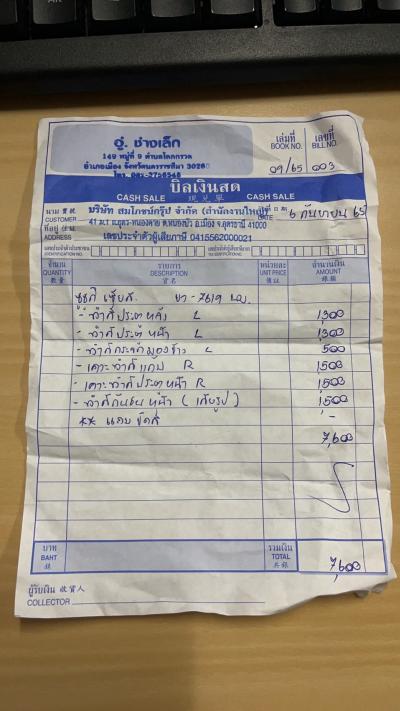 อู๋. ช่างเล็ก
149 หมู่ที่ 9 ตำบลโคกกรวด
อำเภอเมือง จังหวัดนครราชสีมา 30280
โทร.
เล่มที่ เลขที่
BOOK NO. BILL NO.
09/65 003
บิลเงินสด
CASH SALE 现兑单 CASH SALE
นาม
CUSTOMER
บริษัท สมโภชน์กรุ๊ป จำกัด (สำนักงานใหญ่)
วันที่
DATE
6 กันยายน 65
ที่อยู่
ADDRESS
อ.เมือง จ.อุดรธานี 41000
เลขประจำตัวผู้เสียภาษี 0415562000021
จำนวน รายการ หน่วยละ จำนวนเงิน
QUANTITY DESCRIPTION UNIT PRICE AMOUNT
数量 货名
ซูซูกิ - 7619
- ทำสีประตูหลัง L 1,300
- ทำสีประตูหน้า L 1,300
- ทำสีกระจกมองข้าง L 500
- เคาะทำสีแก้ม R 1,500
- เคาะทำสีประตูหน้า R 1,500
- ทำสีกันชนหน้า ( เก็บรูป ) 1,500
** แถมขัดสี -
7,600
บาท รวมเงิน
BAHT TOTAL
7,600
ผู้รับเงิน 收货人
COLLECTOR